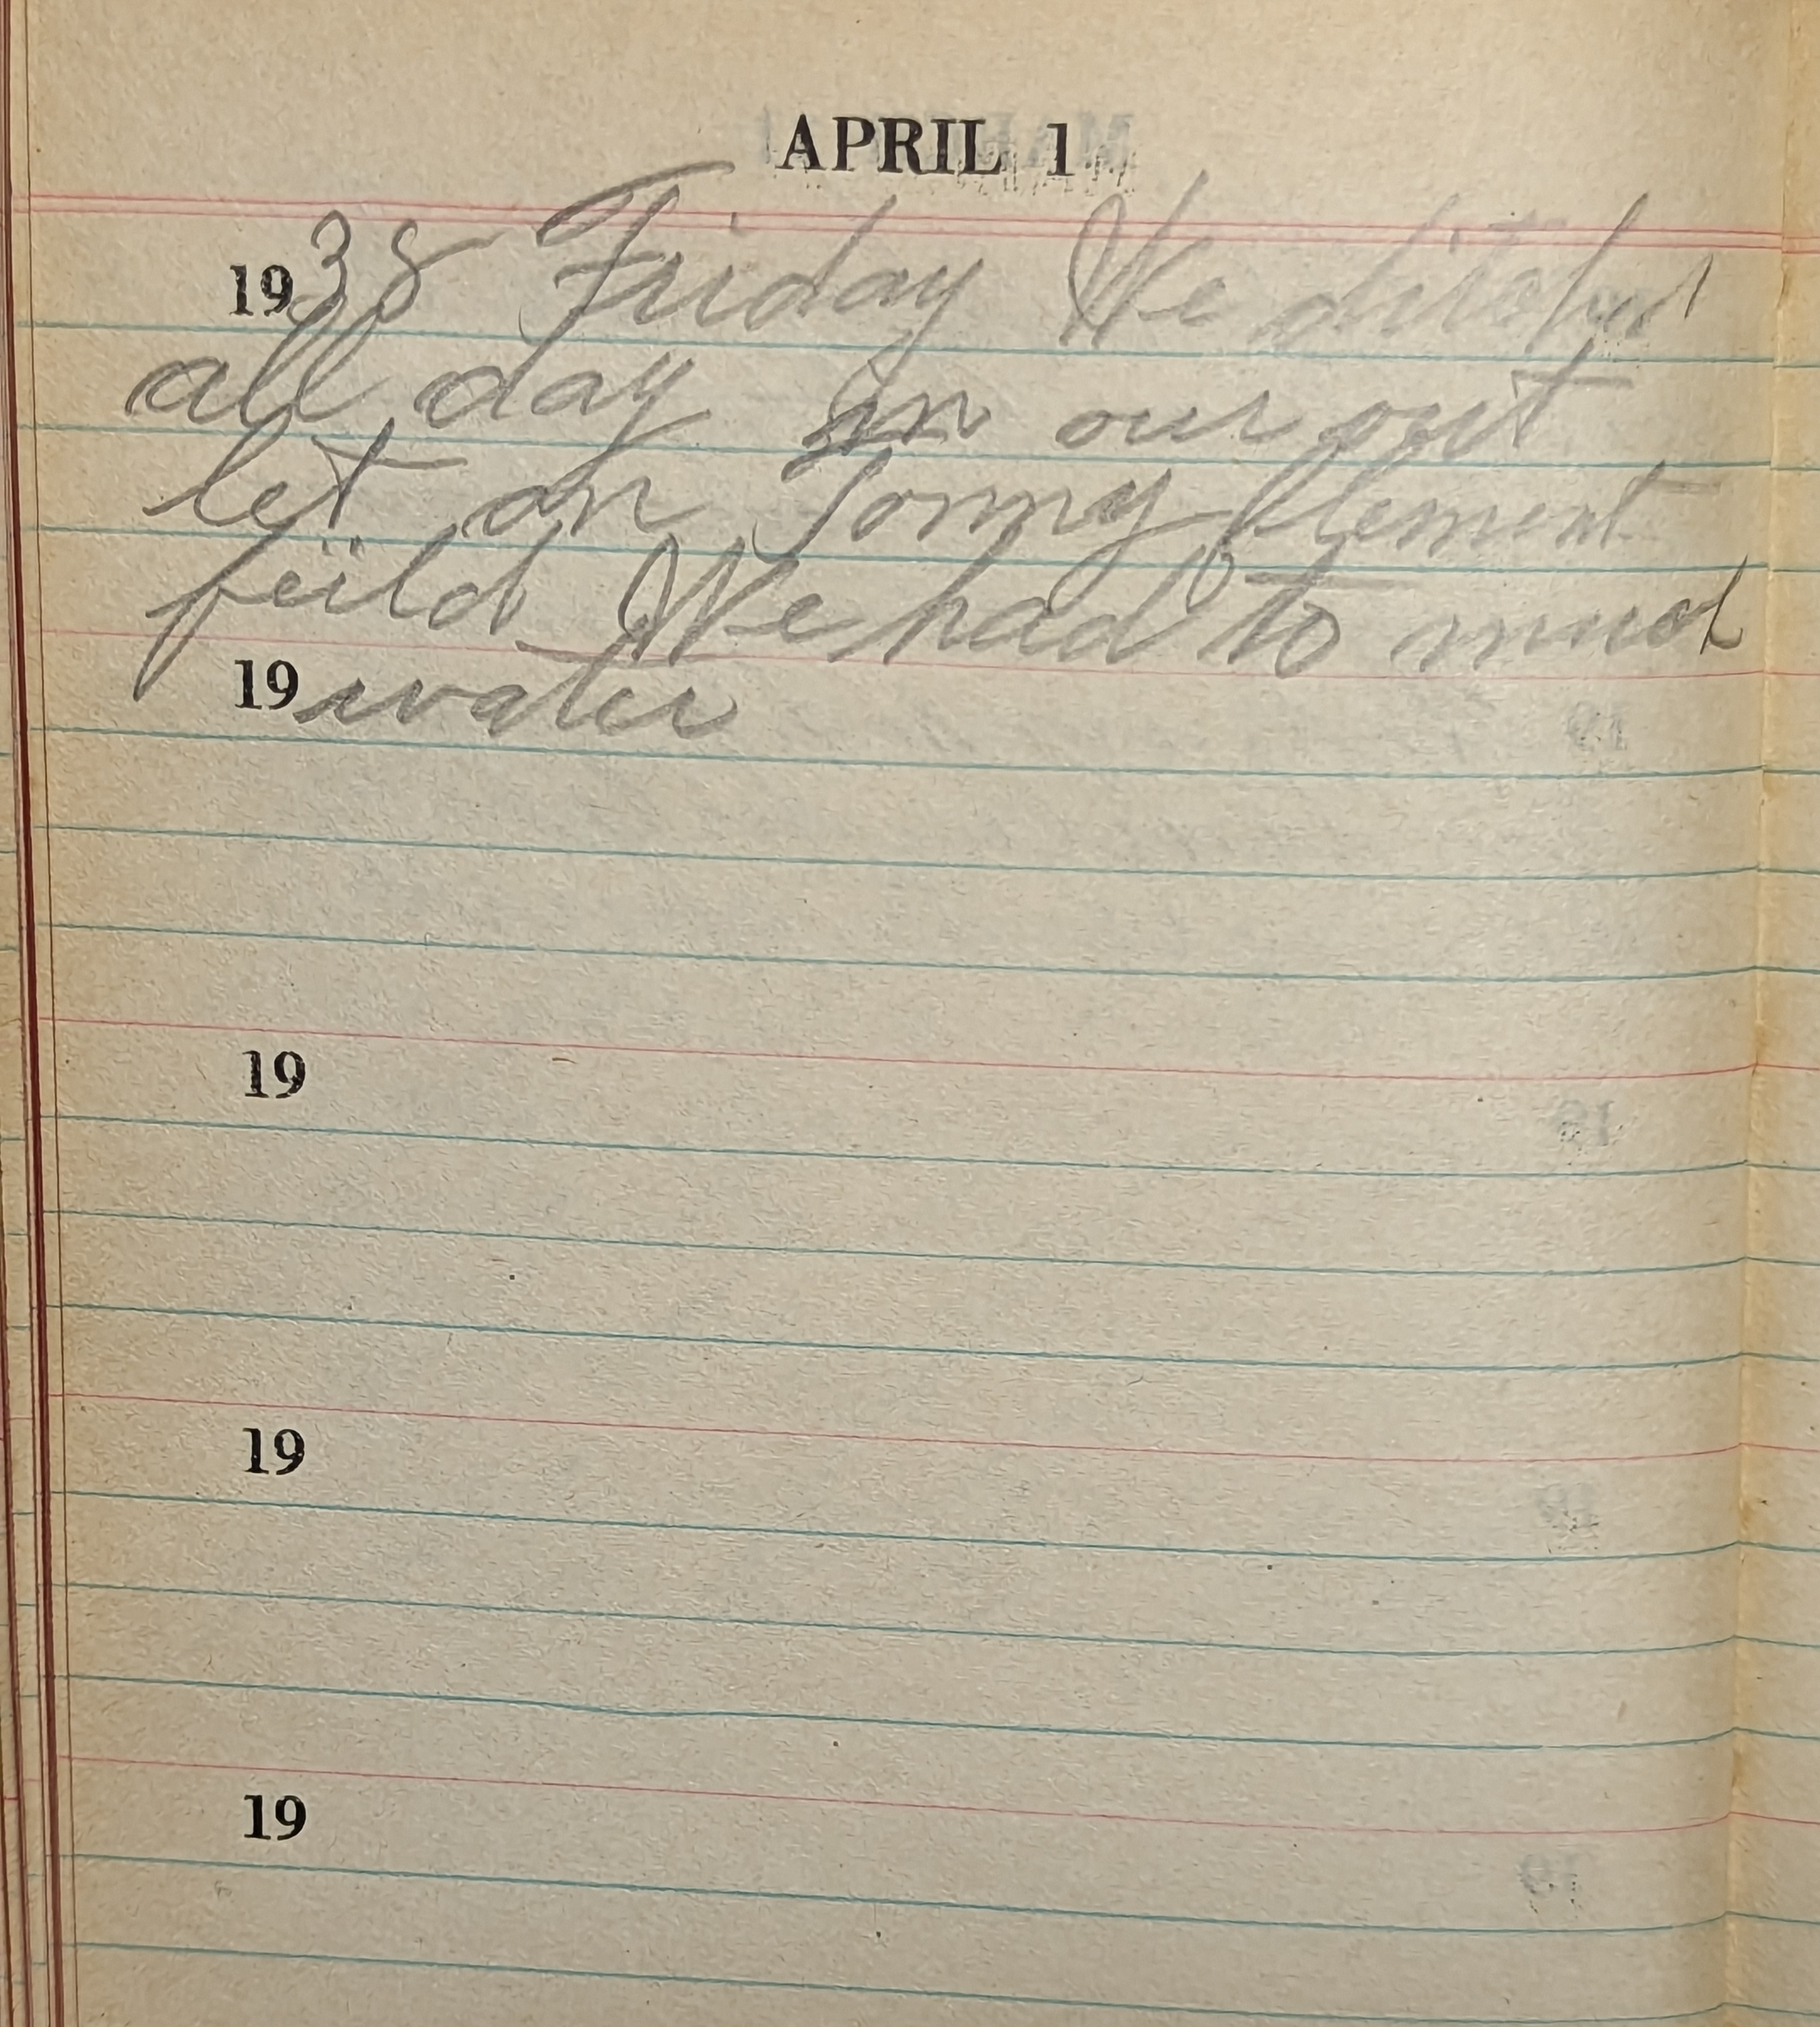 APRIL 1
1938 Friday We ditched
all day in our out
let on Tommy Clement
feild We had to much
19 water
19
19
19